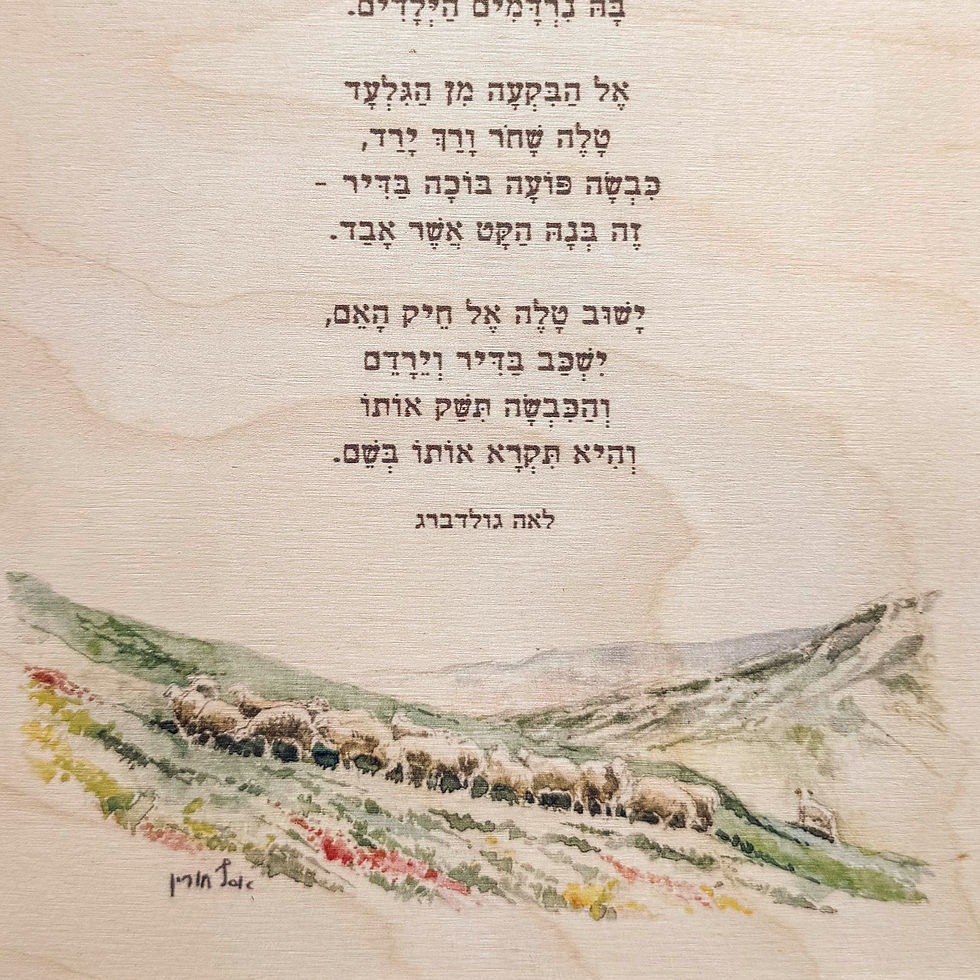 בָּהּ נִרְדָּמִים הַיְּלָדִים.
אֶל הַבִּקְעָה מִן הַגִּלְעָד
טָלֶה שָׁחֹר וָרַךְ יָרַד,
כִּבְשָׂה פּוֹעָה בּוֹכָה בַּדִּיר -
זֶה בְּנָהּ הַקָּט אֲשֶׁר אָבַד.
יָשׁוּב טָלֶה אֶל חֵיק הָאֵם,
יִשְׁכַּב בַּדִּיר וְיֵרָדֵם
וְהַכִּבְשָׂה תִּשַּׁק אוֹתוֹ
וְהִיא תִּקְרָא אוֹתוֹ בְּשֵׁם.
לאה גולדברג